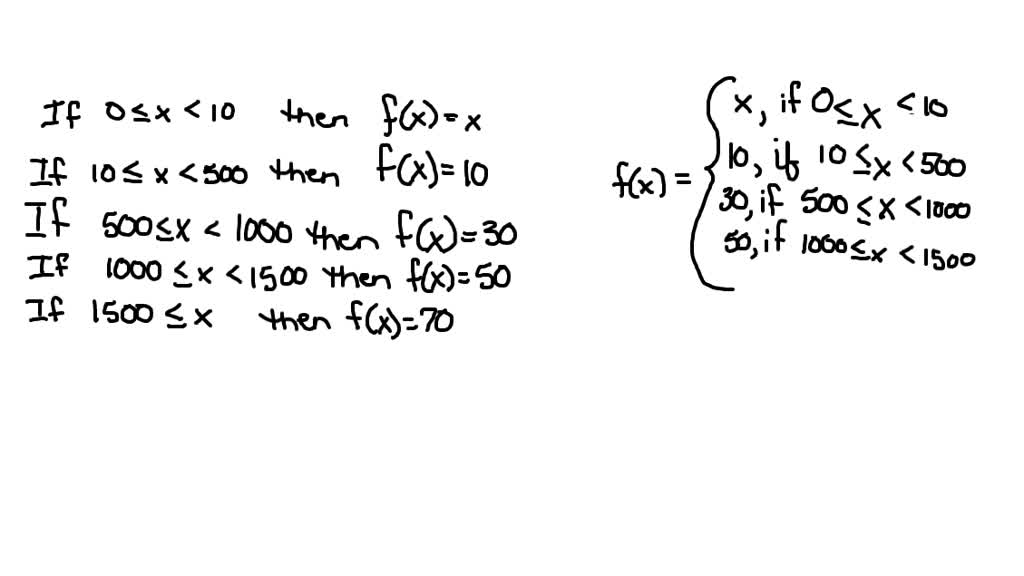 If 0 ≤ x < 10 then f(x) = x
If 10 ≤ x < 500 then f(x) = 10
If 500 ≤ x < 1000 then f(x) = 30
If 1000 ≤ x < 1500 then f(x) = 50
If 1500 ≤ x then f(x) = 70
f(x) = {
x, if 0 ≤ x < 10
10, if 10 ≤ x < 500
30, if 500 ≤ x < 1000
50, if 1000 ≤ x < 1500